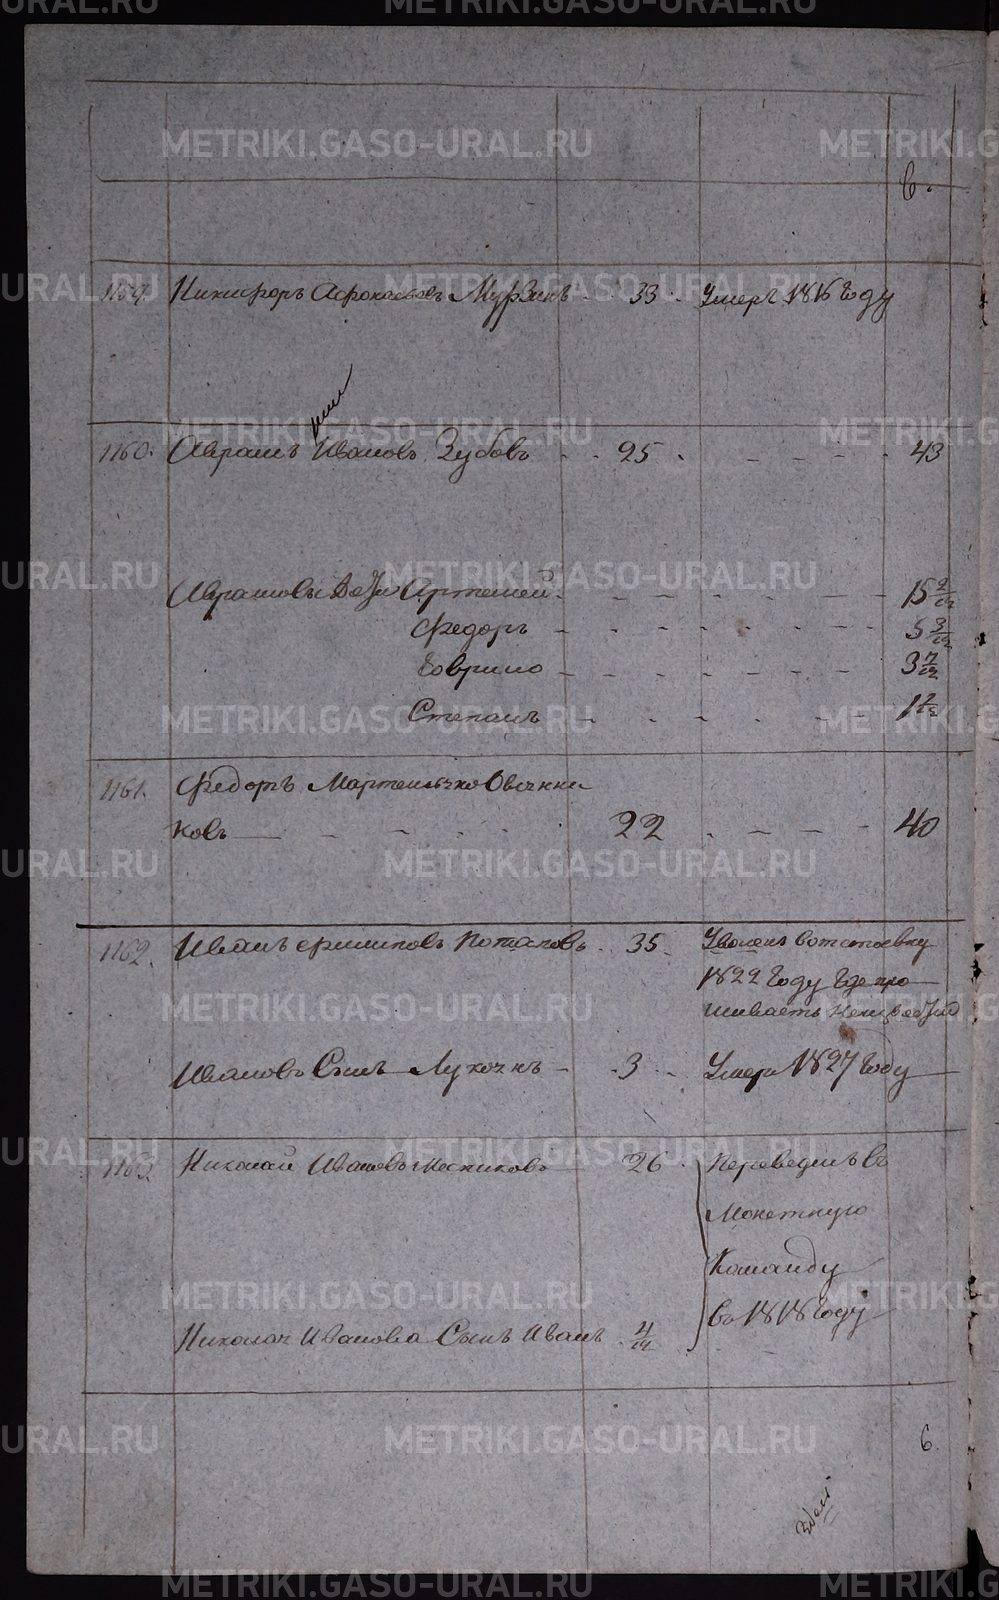 6.
1159. Никифоръ Афонасьевъ Мурзинъ - 33 - Умеръ 1816 году
1160. Аврамъ Ивановъ Зубовъ - 25 - 43
Аврамовы Дети Артемей - 15 2/12
Федоръ - 5 3/12
Гаврило - 3 7/12
Степанъ - 1/12
1161. Федоръ Овчинни
ковъ - 22 - 40
1162. Иванъ Потаповъ - 35 - Уволенъ вотставку
1822 году где про
живаетъ
Ивановъ Сынъ - 3 - Умеръ 1827 году
1163. Николай Ивановъ - 26 - Переведенъ в
Монетную
Команду
во 1818 году
Николая Иванова Сынъ Иванъ
6